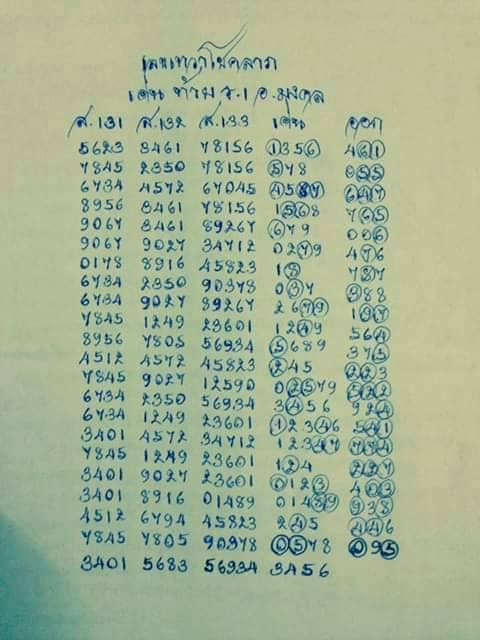 เลขเทวาโชคลาภ
เด่น ห้าม ว.1 อ.มงคล
ส.131 ส.132 ส.133 เด่น ออก
5623 8461 78156 1356 461
7845 2350 78156 578 855
6734 4572 67045 4587 647
8956 8461 78156 1568 765
9067 8461 89267 679 006
9067 9027 34712 0279 476
0178 8916 45823 18 787
6734 2350 90378 037 388
6734 9027 89267 2679 197
7845 1249 23601 1249 564
8956 7805 56934 5689 375
4512 4572 45823 245 223
7845 9027 12590 02579 522
6734 2350 56934 3456 924
6734 1249 23601 12346 541
3401 4572 34712 12347 784
7845 1249 23601 124 227
3401 9027 23601 0123 403
3401 8916 01489 01489 938
4512 6794 45823 245 446
7845 7805 90378 0578 095
3401 5683 56934 3456